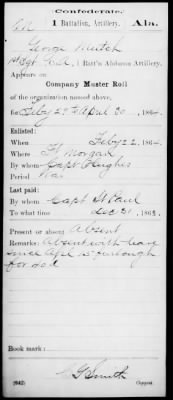 Confederate.
1 Battalion, Artillery. Ala.
George Mutch
1st Sgt, Co. A, 1 Batt'n Alabama Artillery.
Appears on
Company Muster Roll
of the organization named above,
for Feby 29 to April 30, 1864.
Enlisted:
When Feby 22, 1864.
Where Ft Morgan
By whom Capt Hughes
Period War
Last paid:
By whom Capt St Paul
To what time Dec 31, 1863.
Present or absent Absent
Remarks: Absent with leave
since Apl furlough
for
Book mark:
G Smith
(642) Copyist.